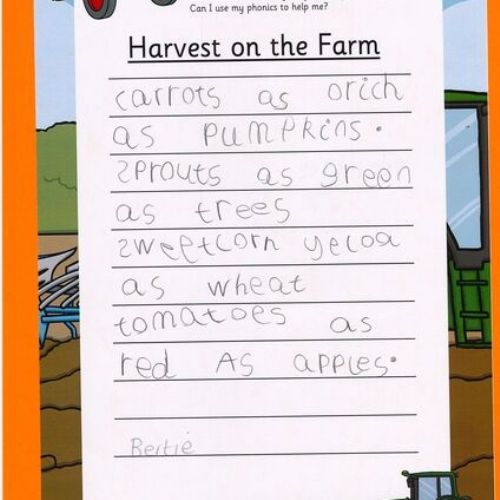 Can I use my phonics to help me?
Harvest on the Farm
carrots as orich
as pumpkins.
sprouts as green
as trees
sweetcorn yecoa
as wheat
tomatoes as
red As apples.
Bertie